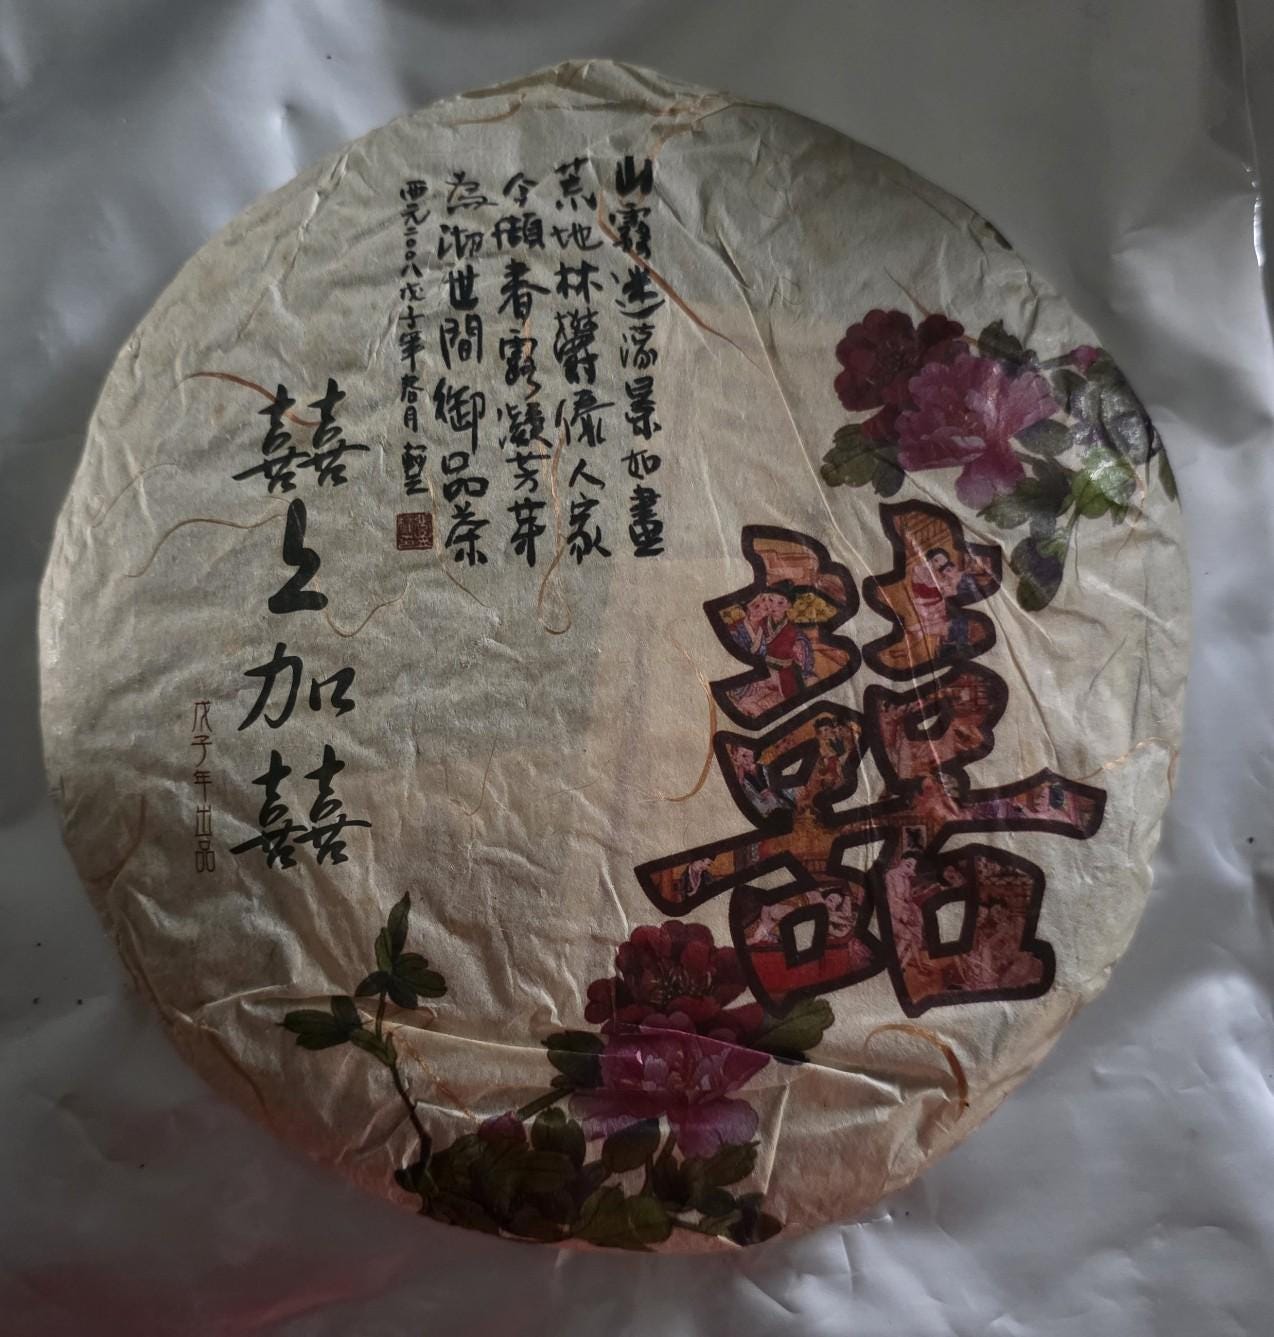 山霧迷濛景如畫
荒地林欝傣人家
今擷春露凝芳芽
為沏世間御品茶
西元二〇〇八戊子年叁月
囍上加囍
戊子年出品
囍